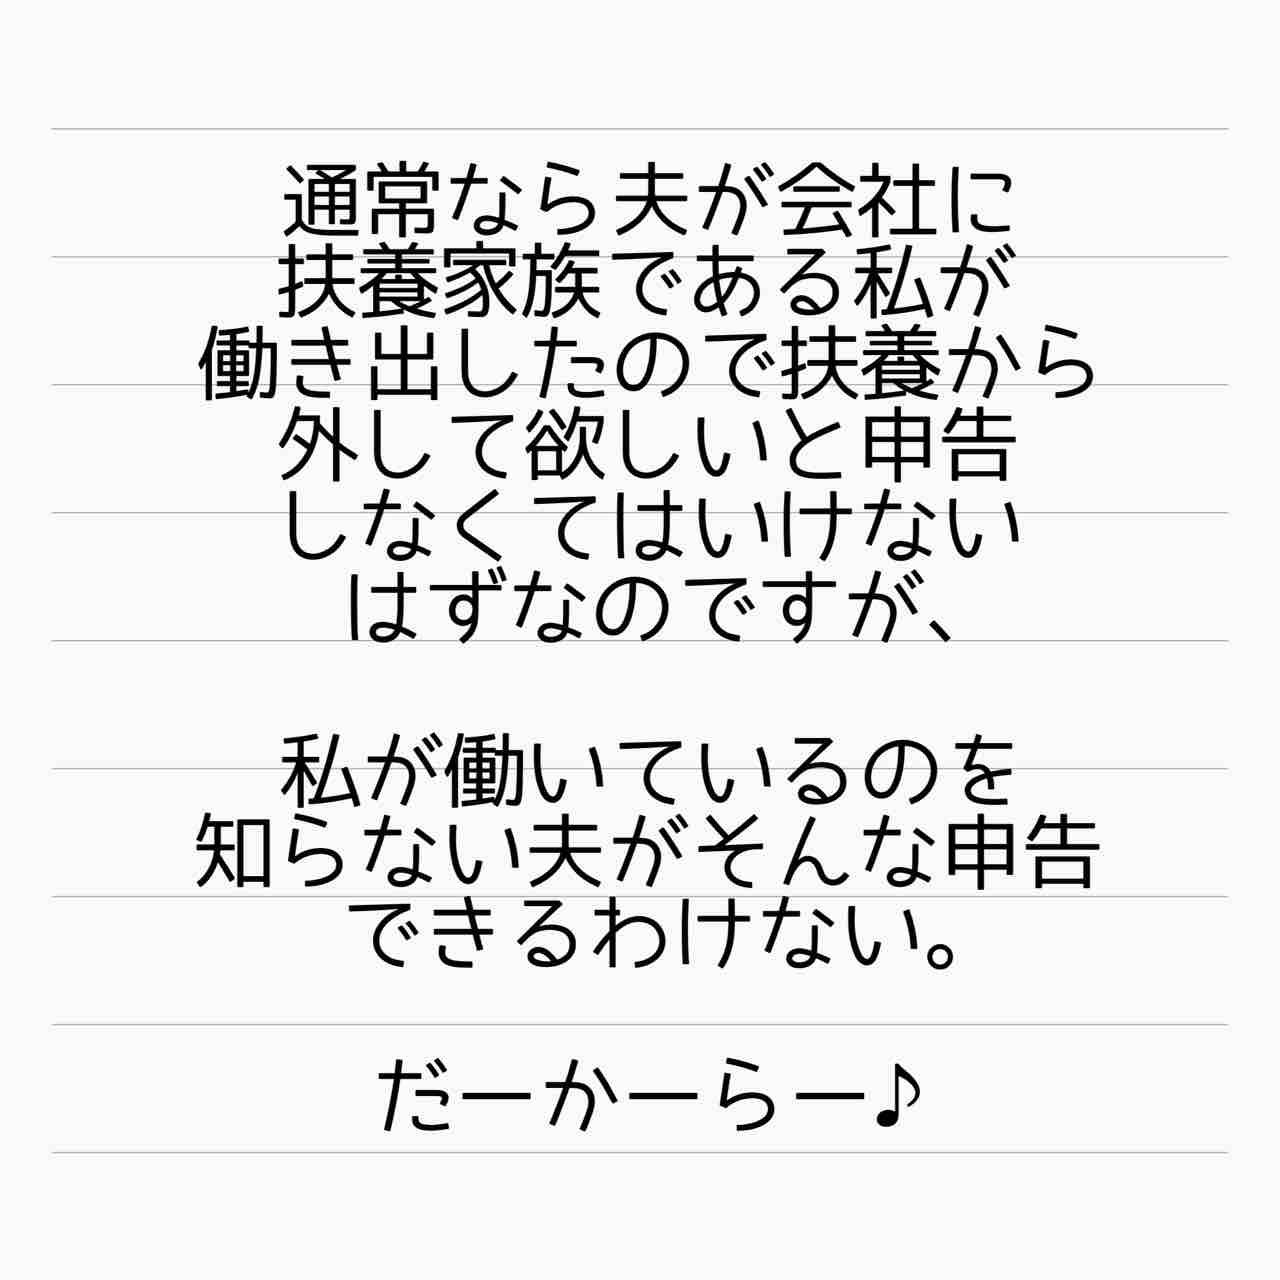 通常なら夫が会社に
扶養家族である私が
働き出したので扶養から
外して欲しいと申告
しなくてはいけない
はずなのですが、
私が働いているのを
知らない夫がそんな申告
できるわけない。
だーかーらー♪